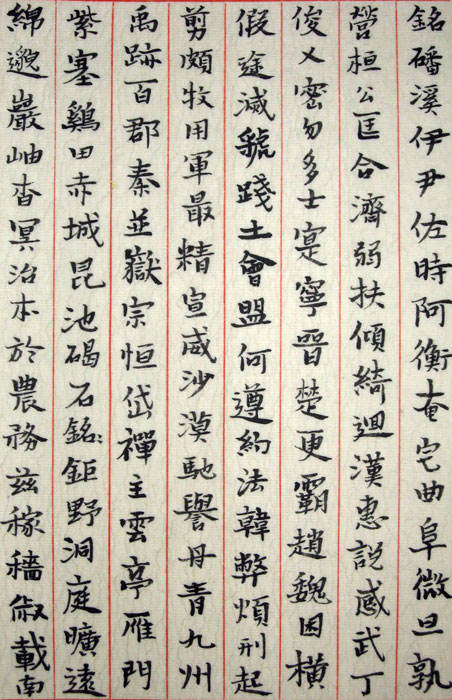 銘磻溪伊尹佐時阿衡奄宅曲阜微旦孰
營桓公匡合濟弱扶傾綺迴漢惠說感武丁
俊乂密勿多士寔寧晉楚更霸趙魏困橫
假途滅虢踐土會盟何遵約法韓弊煩刑起
剪頗牧用軍最精宣威沙漠馳譽丹青九州
禹跡百郡秦並嶽宗恒岱禪主雲亭雁門
紫塞鷄田赤城昆池碣石銘鉅野洞庭曠遠
綿邈巖岫杳冥治本於農務茲稼穡俶載南